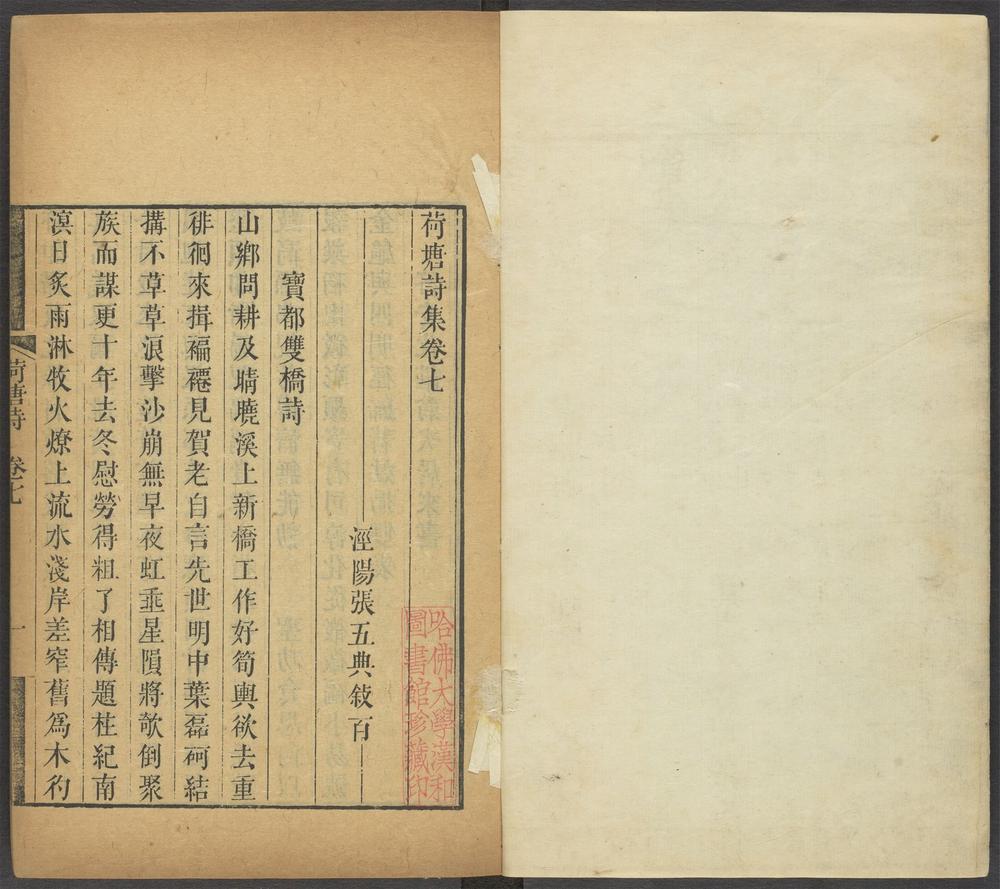 荷塘詩集卷七
涇陽張五典敍百
寶都雙橋詩
山鄉問耕及晴曉溪上新橋工作好筍輿欲去重
徘徊來揖褔襹見賀老自言先世明中葉磊砢結
搆不草草浪擊沙崩無早夜虹埀星隕將欹倒聚
族而謀更十年去冬慰勞得粗了相傳題柱紀南
溟日炙雨淋牧火燎上流水淺岸差窄舊爲木彴
荷唐詩 卷七 一
哈佛大學漢和
圖書館珍藏印